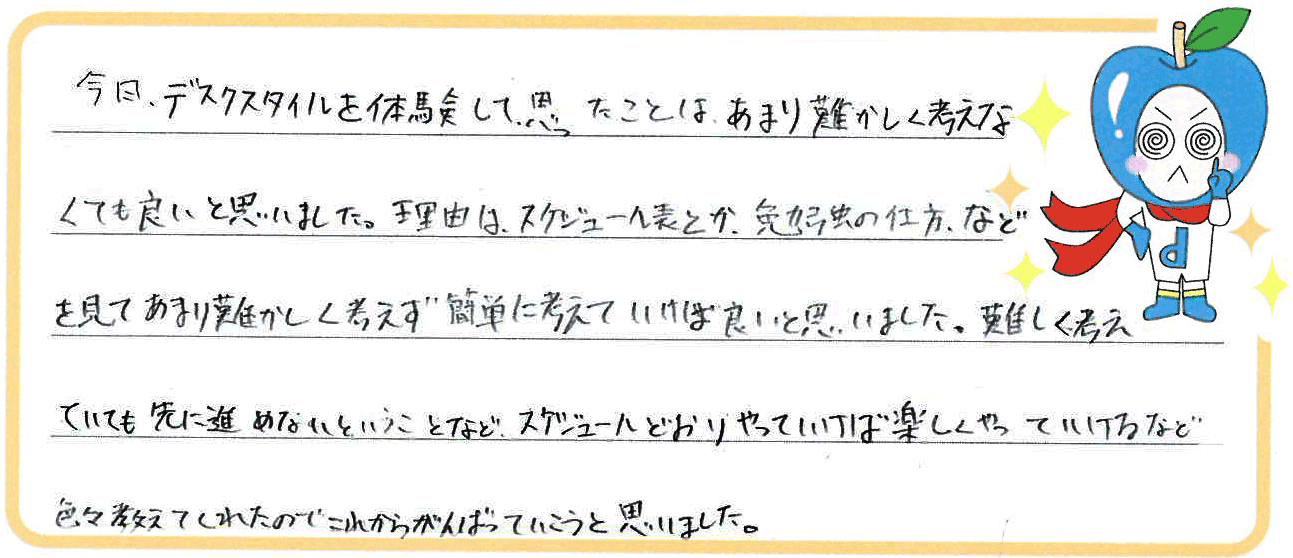 今日、デスクスタイルを体験して、思ったことは、あまり難かしく考えな
くても良いと思いました。理由は、スケジュール表とか、勉強の仕方、など
を見てあまり難かしく考えず簡単に考えていけば良いと思いました。難しく考え
ていても先に進めないということなど、スケジュールどおりやっていけば楽しくやっていけるなど
色々教えてくれたのでこれからがんばっていこうと思いました。
d